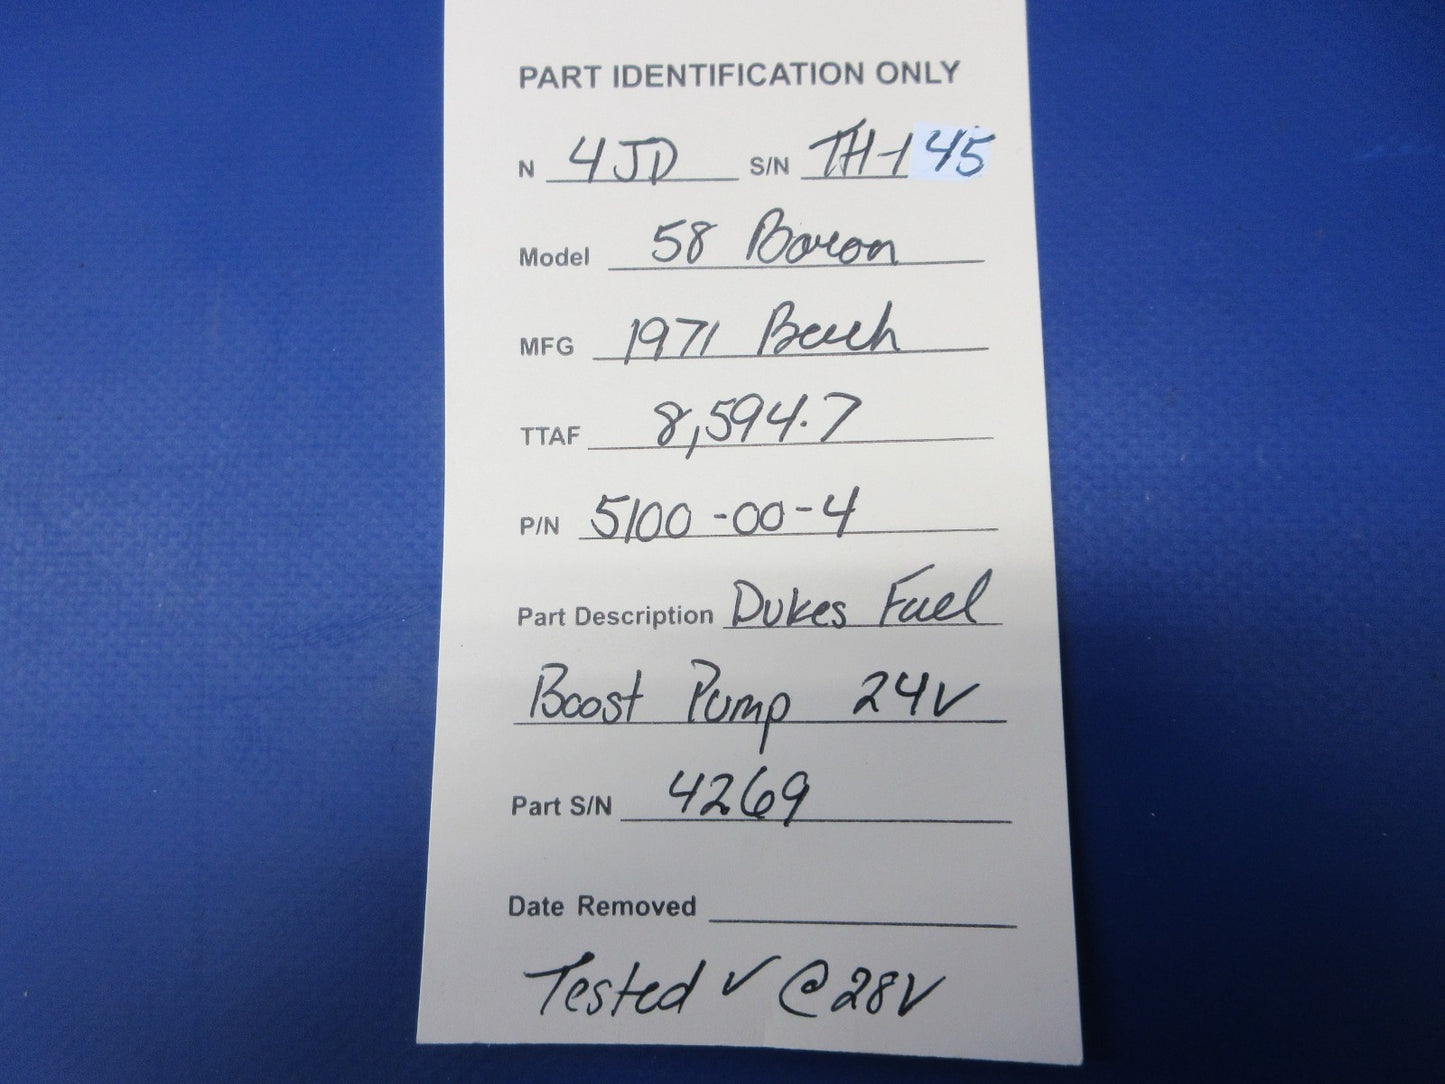 PART IDENTIFICATION ONLY
N 4JD S/N TH-145
Model 58 Baron
MFG 1971 Beech
TTAF 8,594.7
P/N 5100-00-4
Part Description Dukes Fuel
Boost Pump 24V
Part S/N 4269
Date Removed
Tested ✓ @ 28V